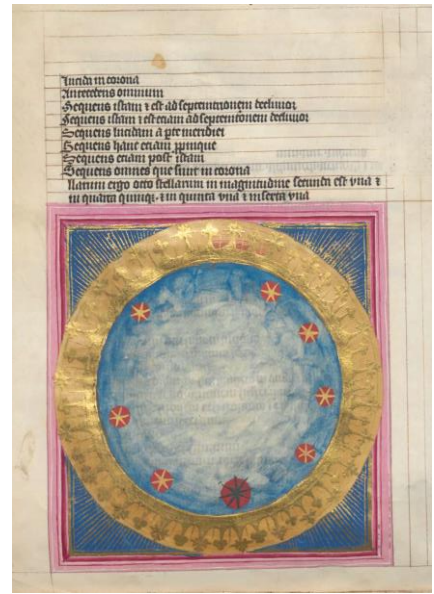 Lucida in corona
Antecedens omnium
Sequens istam ⁊ est ad septemtrionem declivior
Sequens istam ⁊ est eciam ad septemtrionem declivior
Sequens lucidam a pte meridiei
Sequens hanc eciam ppinque
Sequens eciam post istam
Sequens omnes que sunt in corona
Illarum ergo octo stellarum in magnitudine secunda est vna ⁊
in quarta quinqꝫ ⁊ in quinta vna ⁊ in sexta vna